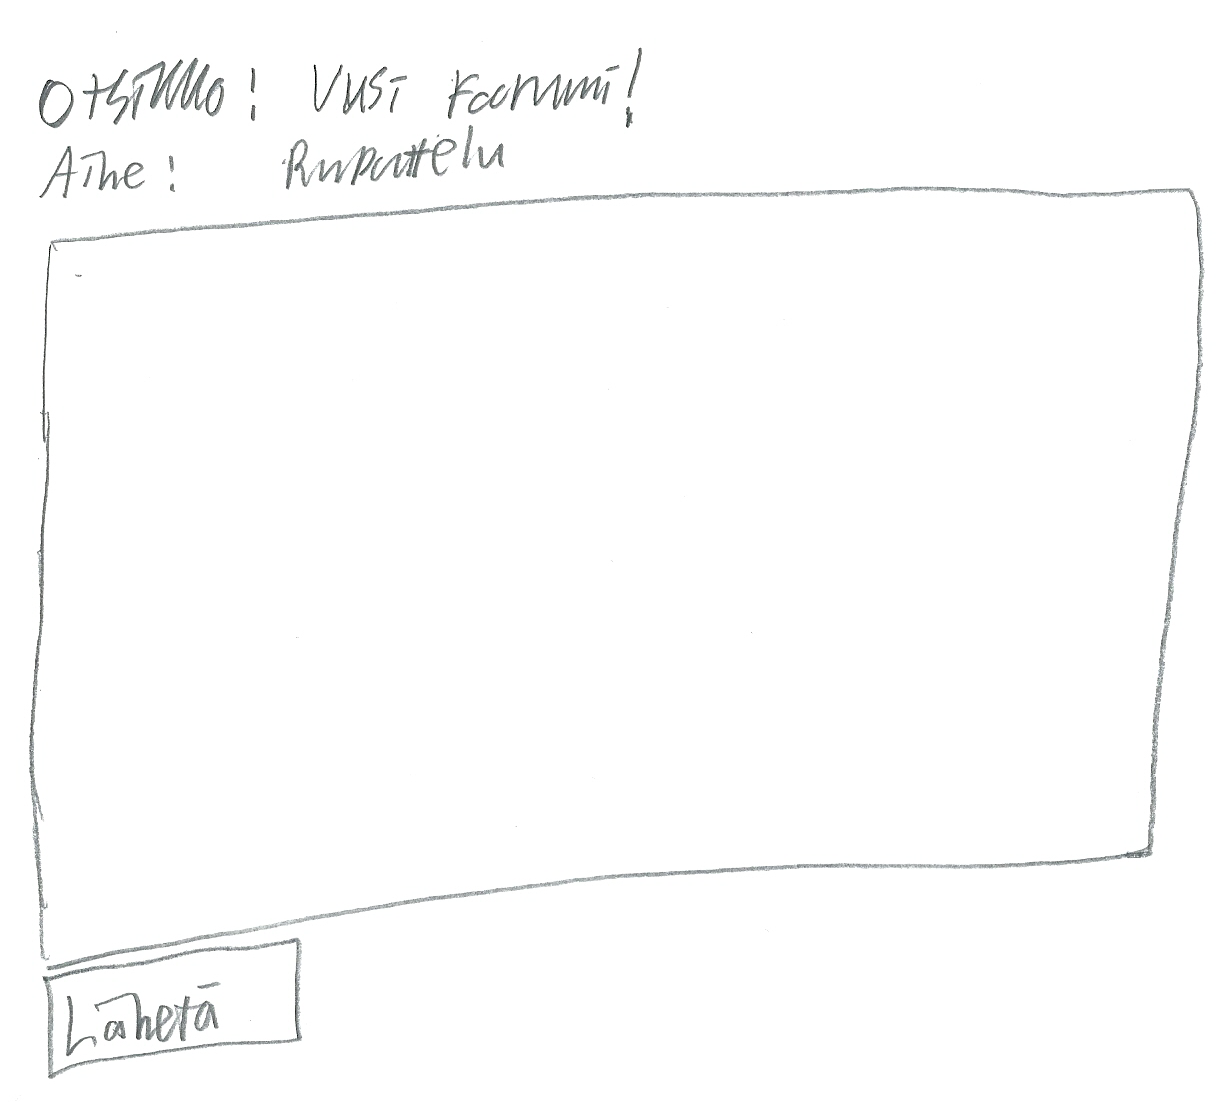 Otsikko: Uusi foorumi!
Aihe: Rupattelu
Lähetä